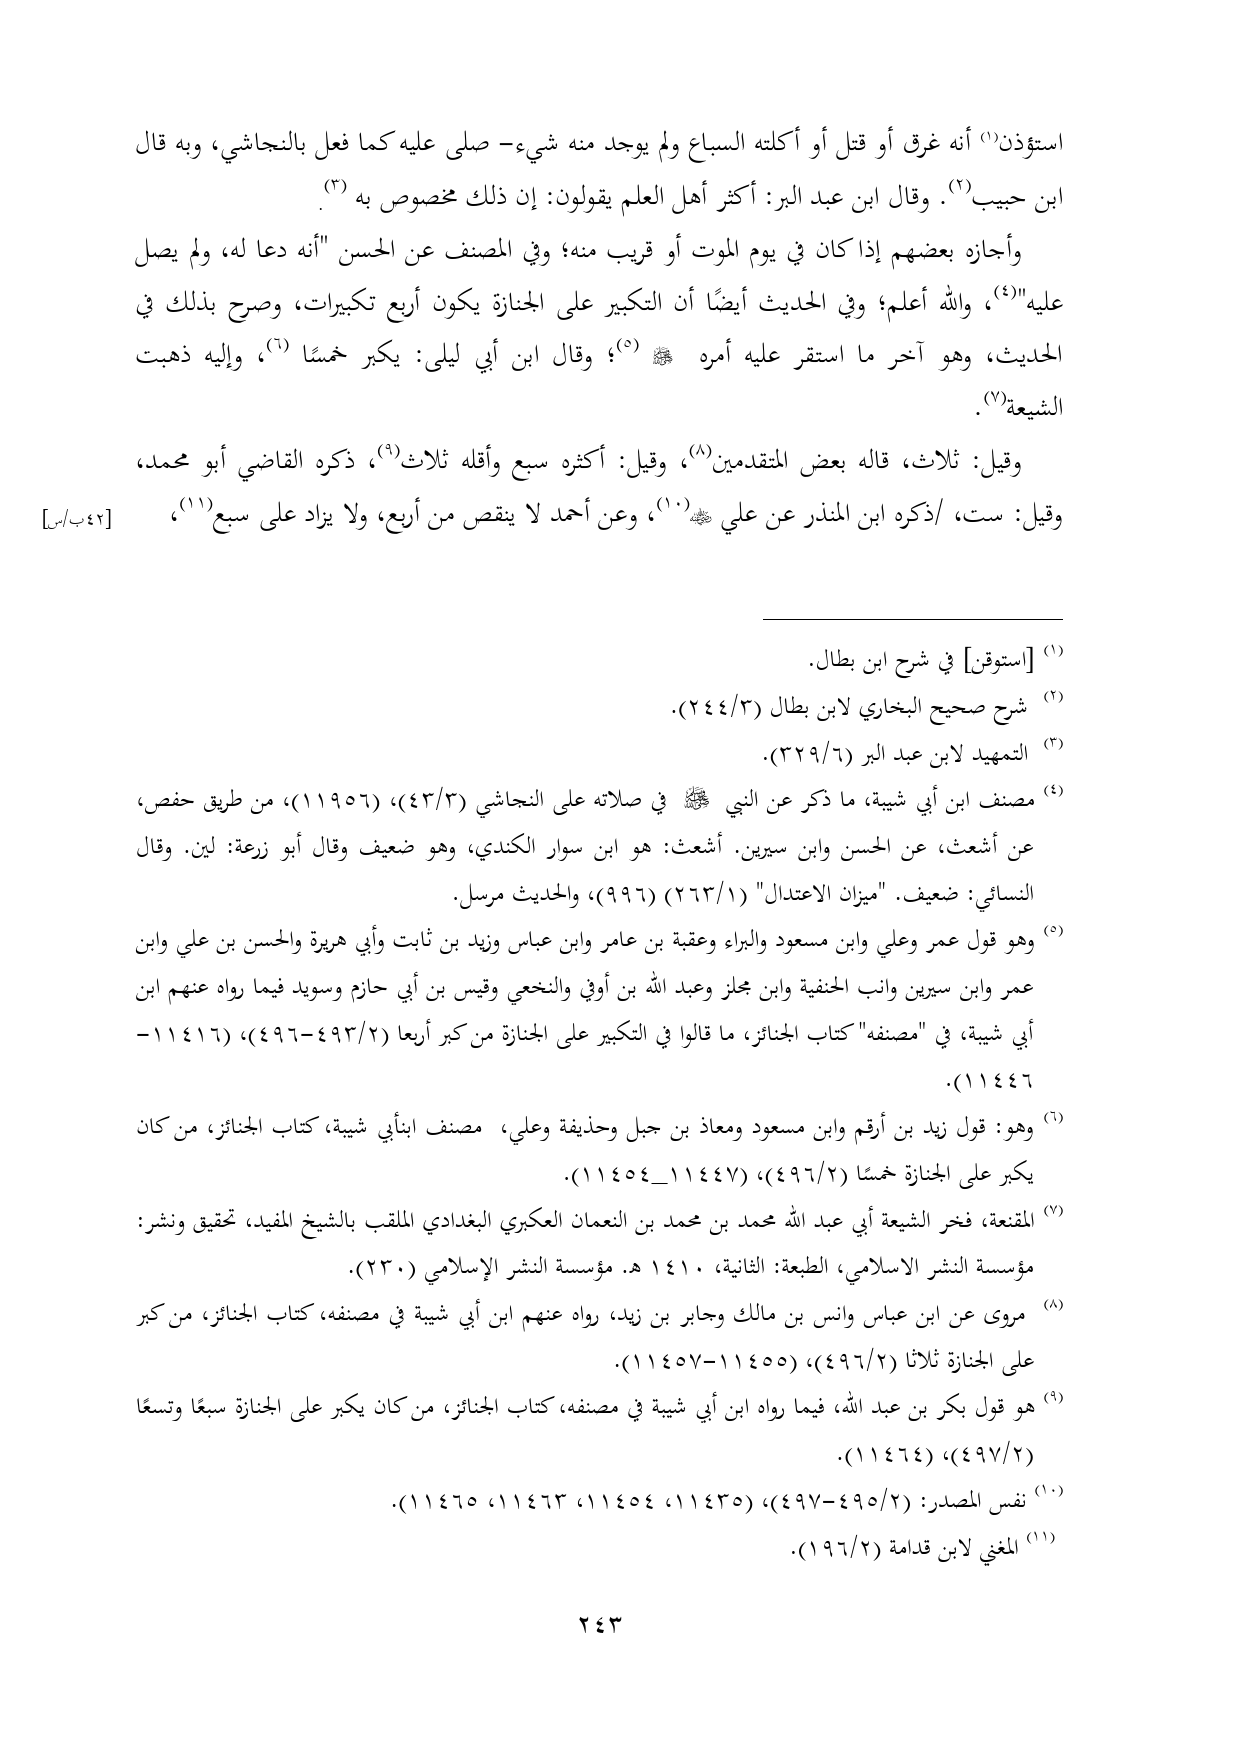 استؤذن(١) أنه غرق أو قتل أو أكلته السباع ولم يوجد منه شيء– صلى عليه كما فعل بالنجاشي، وبه قال
ابن حبيب(٢). وقال ابن عبد البر: أكثر أهل العلم يقولون: إن ذلك مخصوص به (٣).
وأجازه بعضهم إذا كان في يوم الموت أو قريب منه؛ وفي المصنف عن الحسن "أنه دعا له، ولم يصل
عليه"(٤)، والله أعلم؛ وفي الحديث أيضًا أن التكبير على الجنازة يكون أربع تكبيرات، وصرح بذلك في
الحديث، وهو آخر ما استقر عليه أمره ﷺ (٥)؛ وقال ابن أبي ليلى: يكبر خمسًا (٦)، وإليه ذهبت
الشيعة(٧).
وقيل: ثلاث، قاله بعض المتقدمين(٨)، وقيل: أكثره سبع وأقله ثلاث(٩)، ذكره القاضي أبو محمد،
وقيل: ست، /ذكره ابن المنذر عن علي ﵁(١٠)، وعن أحمد لا ينقص من أربع، ولا يزاد على سبع(١١)، [٤٢ب/س]
(١) [استوقن] في شرح ابن بطال.
(٢) شرح صحيح البخاري لابن بطال (٢٤٤/٣).
(٣) التمهيد لابن عبد البر (٣٢٩/٦).
(٤) مصنف ابن أبي شيبة، ما ذكر عن النبي ﷺ في صلاته على النجاشي (٤٣/٣)، (١١٩٥٦)، من طريق حفص،
عن أشعث، عن الحسن وابن سيرين. أشعث: هو ابن سوار الكندي، وهو ضعيف وقال أبو زرعة: لين. وقال
النسائي: ضعيف. "ميزان الاعتدال" (٢٦٣/١) (٩٩٦)، والحديث مرسل.
(٥) وهو قول عمر وعلي وابن مسعود والبراء وعقبة بن عامر وابن عباس وزيد بن ثابت وأبي هريرة والحسن بن علي وابن
عمر وابن سيرين وانب الحنفية وابن مجلز وعبد الله بن أوفي والنخعي وقيس بن أبي حازم وسويد فيما رواه عنهم ابن
أبي شيبة، في "مصنفه" كتاب الجنائز، ما قالوا في التكبير على الجنازة من كبر أربعا (٤٩٣/٢–٤٩٦)، (١١٤١٦–
١١٤٤٦).
(٦) وهو: قول زيد بن أرقم وابن مسعود ومعاذ بن جبل وحذيفة وعلي، مصنف ابنأبي شيبة، كتاب الجنائز، من كان
يكبر على الجنازة خمسًا (٤٩٦/٢)، (١١٤٤٧_١١٤٥٤).
(٧) المقنعة، فخر الشيعة أبي عبد الله محمد بن محمد بن النعمان العكبري البغدادي الملقب بالشيخ المفيد، تحقيق ونشر:
مؤسسة النشر الاسلامي، الطبعة: الثانية، ١٤١٠ هـ. مؤسسة النشر الإسلامي (٢٣٠).
(٨) مروى عن ابن عباس وانس بن مالك وجابر بن زيد، رواه عنهم ابن أبي شيبة في مصنفه، كتاب الجنائز، من كبر
على الجنازة ثلاثا (٤٩٦/٢)، (١١٤٥٥–١١٤٥٧).
(٩) هو قول بكر بن عبد الله، فيما رواه ابن أبي شيبة في مصنفه، كتاب الجنائز، من كان يكبر على الجنازة سبعًا وتسعًا
(٤٩٧/٢)، (١١٤٦٤).
(١٠) نفس المصدر: (٤٩٥/٢–٤٩٧)، (١١٤٣٥، ١١٤٥٤، ١١٤٦٣، ١١٤٦٥).
(١١) المغني لابن قدامة (١٩٦/٢).
٢٤٣